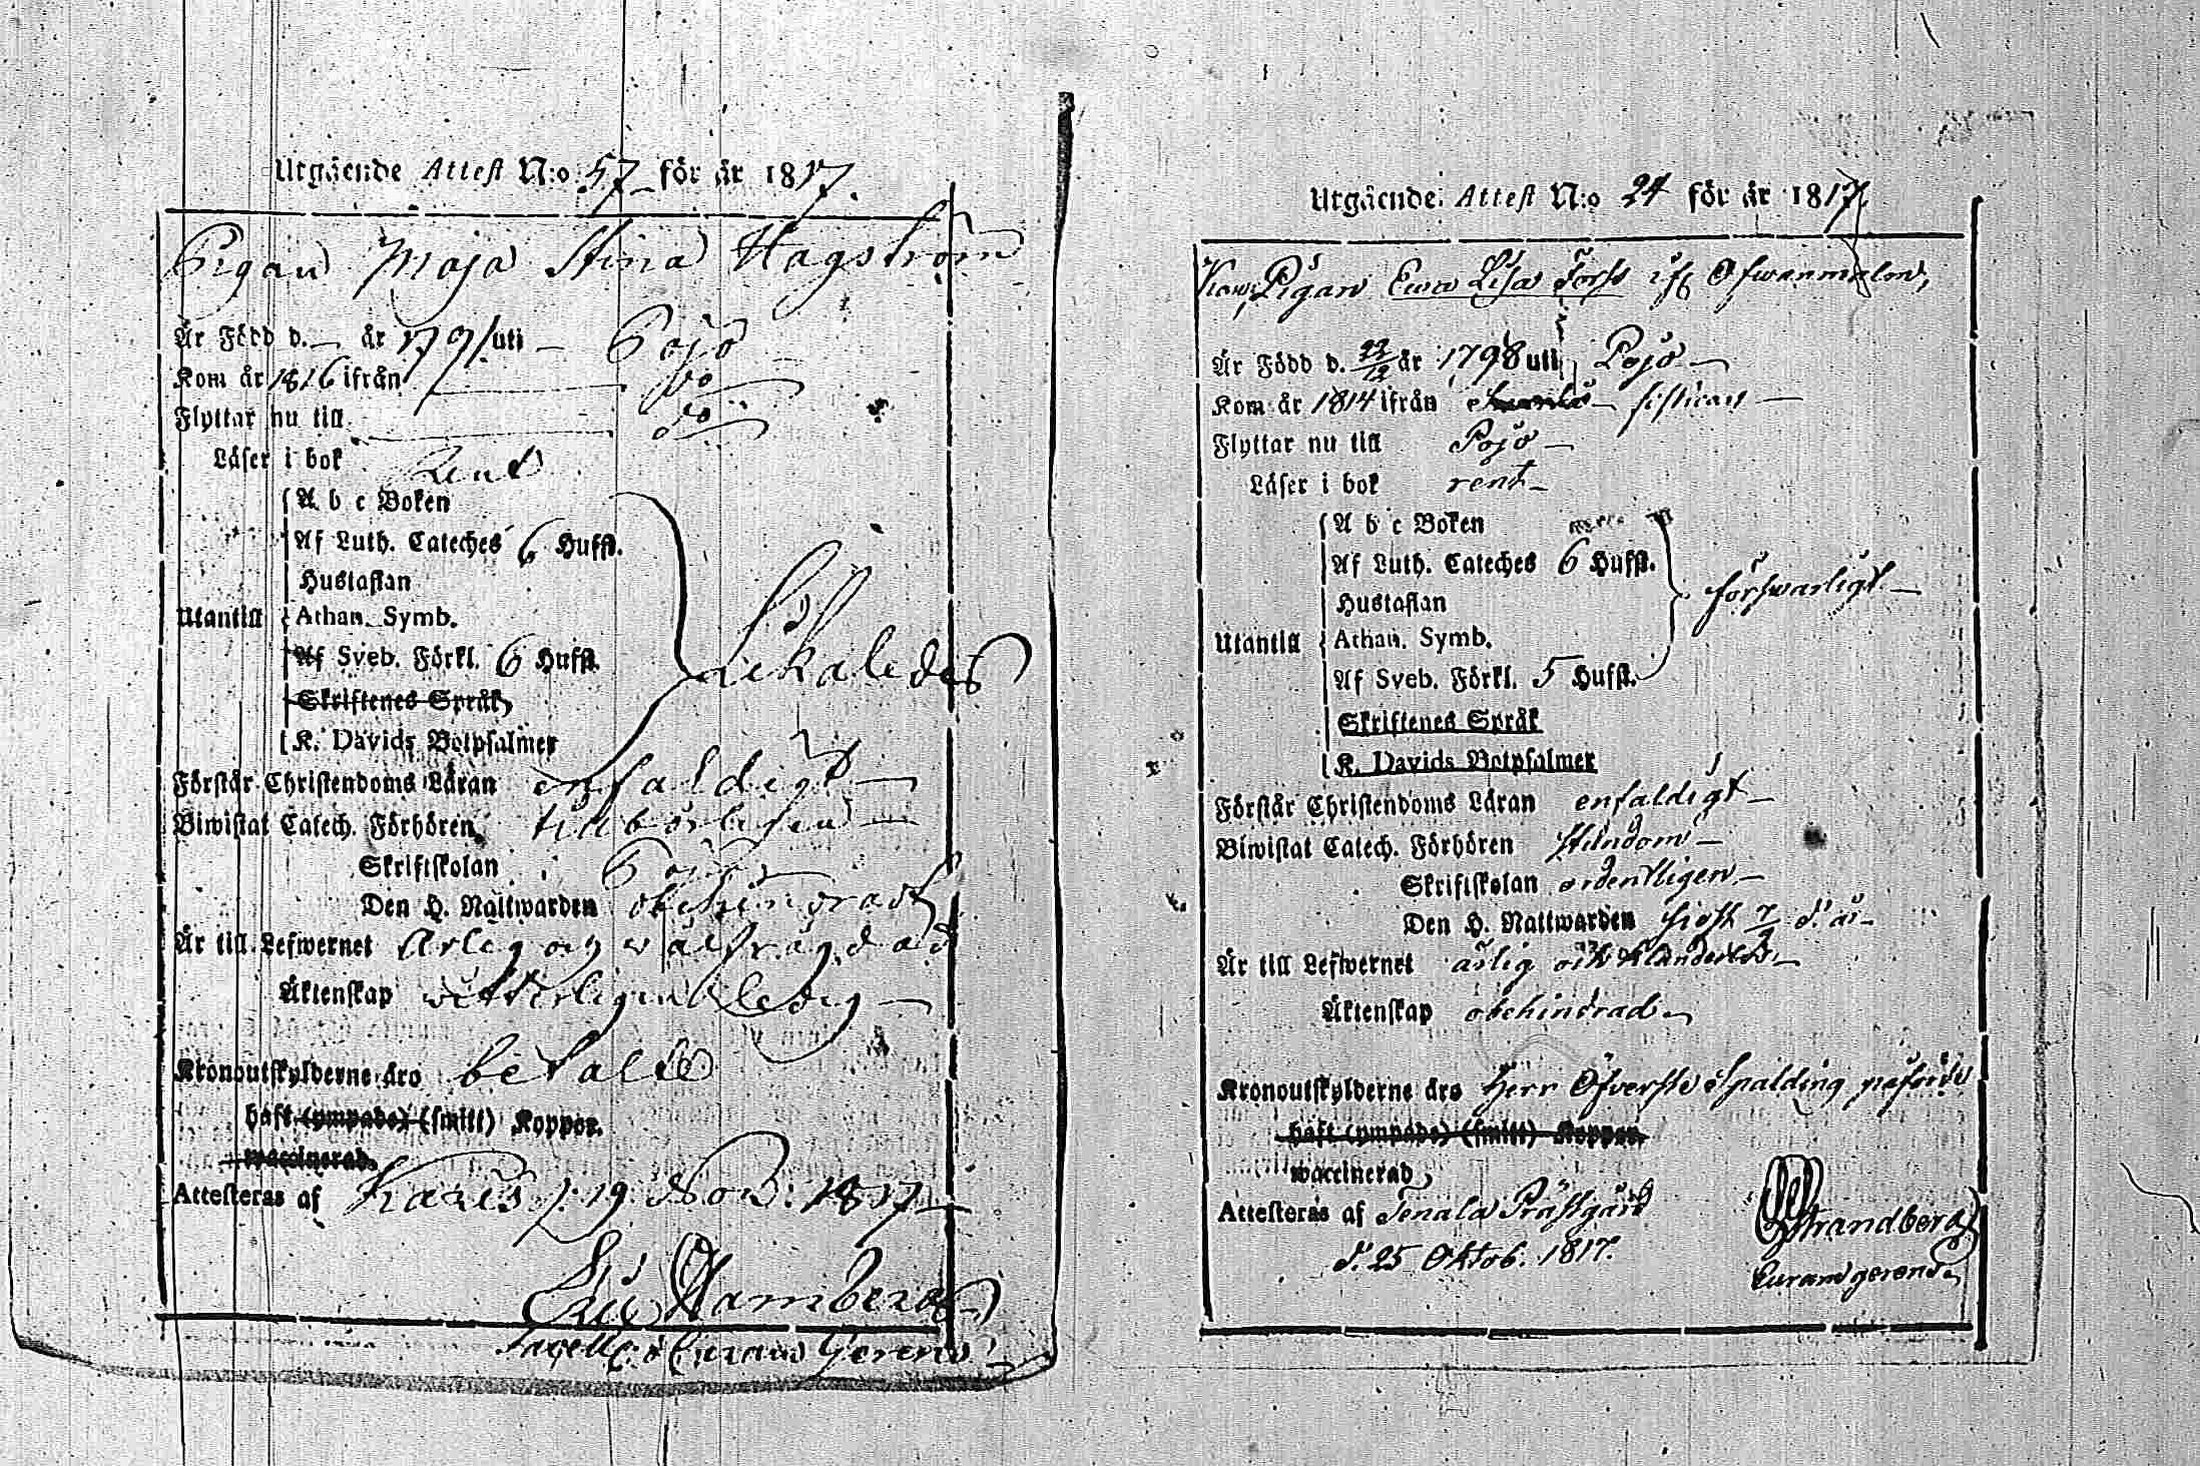 Utgående Attest N:o 57 för år 1817.
Pigan Maja Stina Hagström
Är Född d. — år 1791 uti — Pojo
Kom år 1816 ifrån do
Flyttar nu till do
Läser i bok Rent
A b c Boken
Af Luth. Cateches 6 Hufst.
Hustaflan
Utantill Athan. Symb.
Af Sveb. Förkl. 6 Hufst.
Likaledes
Skriftenes Språk
K. Davids Botpsalmer
Förstår Christendoms Läran enfaldigt —
Biwistat Catech. Förhören tillbörligen —
Skriftskolan
Den H. Nattwarden obehindrad
Är till Lefwernet Ärlig och wälfrägdad
Äktenskap witterligen ledig —
Kronoutskylderne äro betalte
haft (ympade) (smitt) Koppor.
waccinerad.
Attesteras af Karis d. 19 Nov: 1817 —
Eric Hamberg
Sacell: & Curam Gerens
Utgående Attest N:o 24 för år 1817.
Pigan Ewa Lisa Forss ifr Ofwanmalm,
Är Född d. 22/12 år 1798 uti Pojo —
Kom år 1814 ifrån sistican —
Flyttar nu till Pojo —
Läser i bok rent —
A b c Boken
Af Luth. Cateches 6 Hufst.
försvarligt —
Hustaflan
Utantill Athan. Symb.
Af Sveb. Förkl. 5 Hufst.
Skriftenes Språk
K. Davids Botpsalmer
Förstår Christendoms Läran enfaldigt —
Biwistat Catech. Förhören stundom —
Skriftskolan ordentligen —
Den H. Nattwarden sist 7/9 d. år
Är till Lefwernet ärlig och oklanderlig —
Äktenskap obehindrad
Kronoutskylderne äro Herr Öfverste Spalding påförde
haft (ympade) (smitt) Koppor.
waccinerad
Attesteras af Tenala Prästgård
d. 25 Oktob. 1817.
Strandberg
Curam gerens